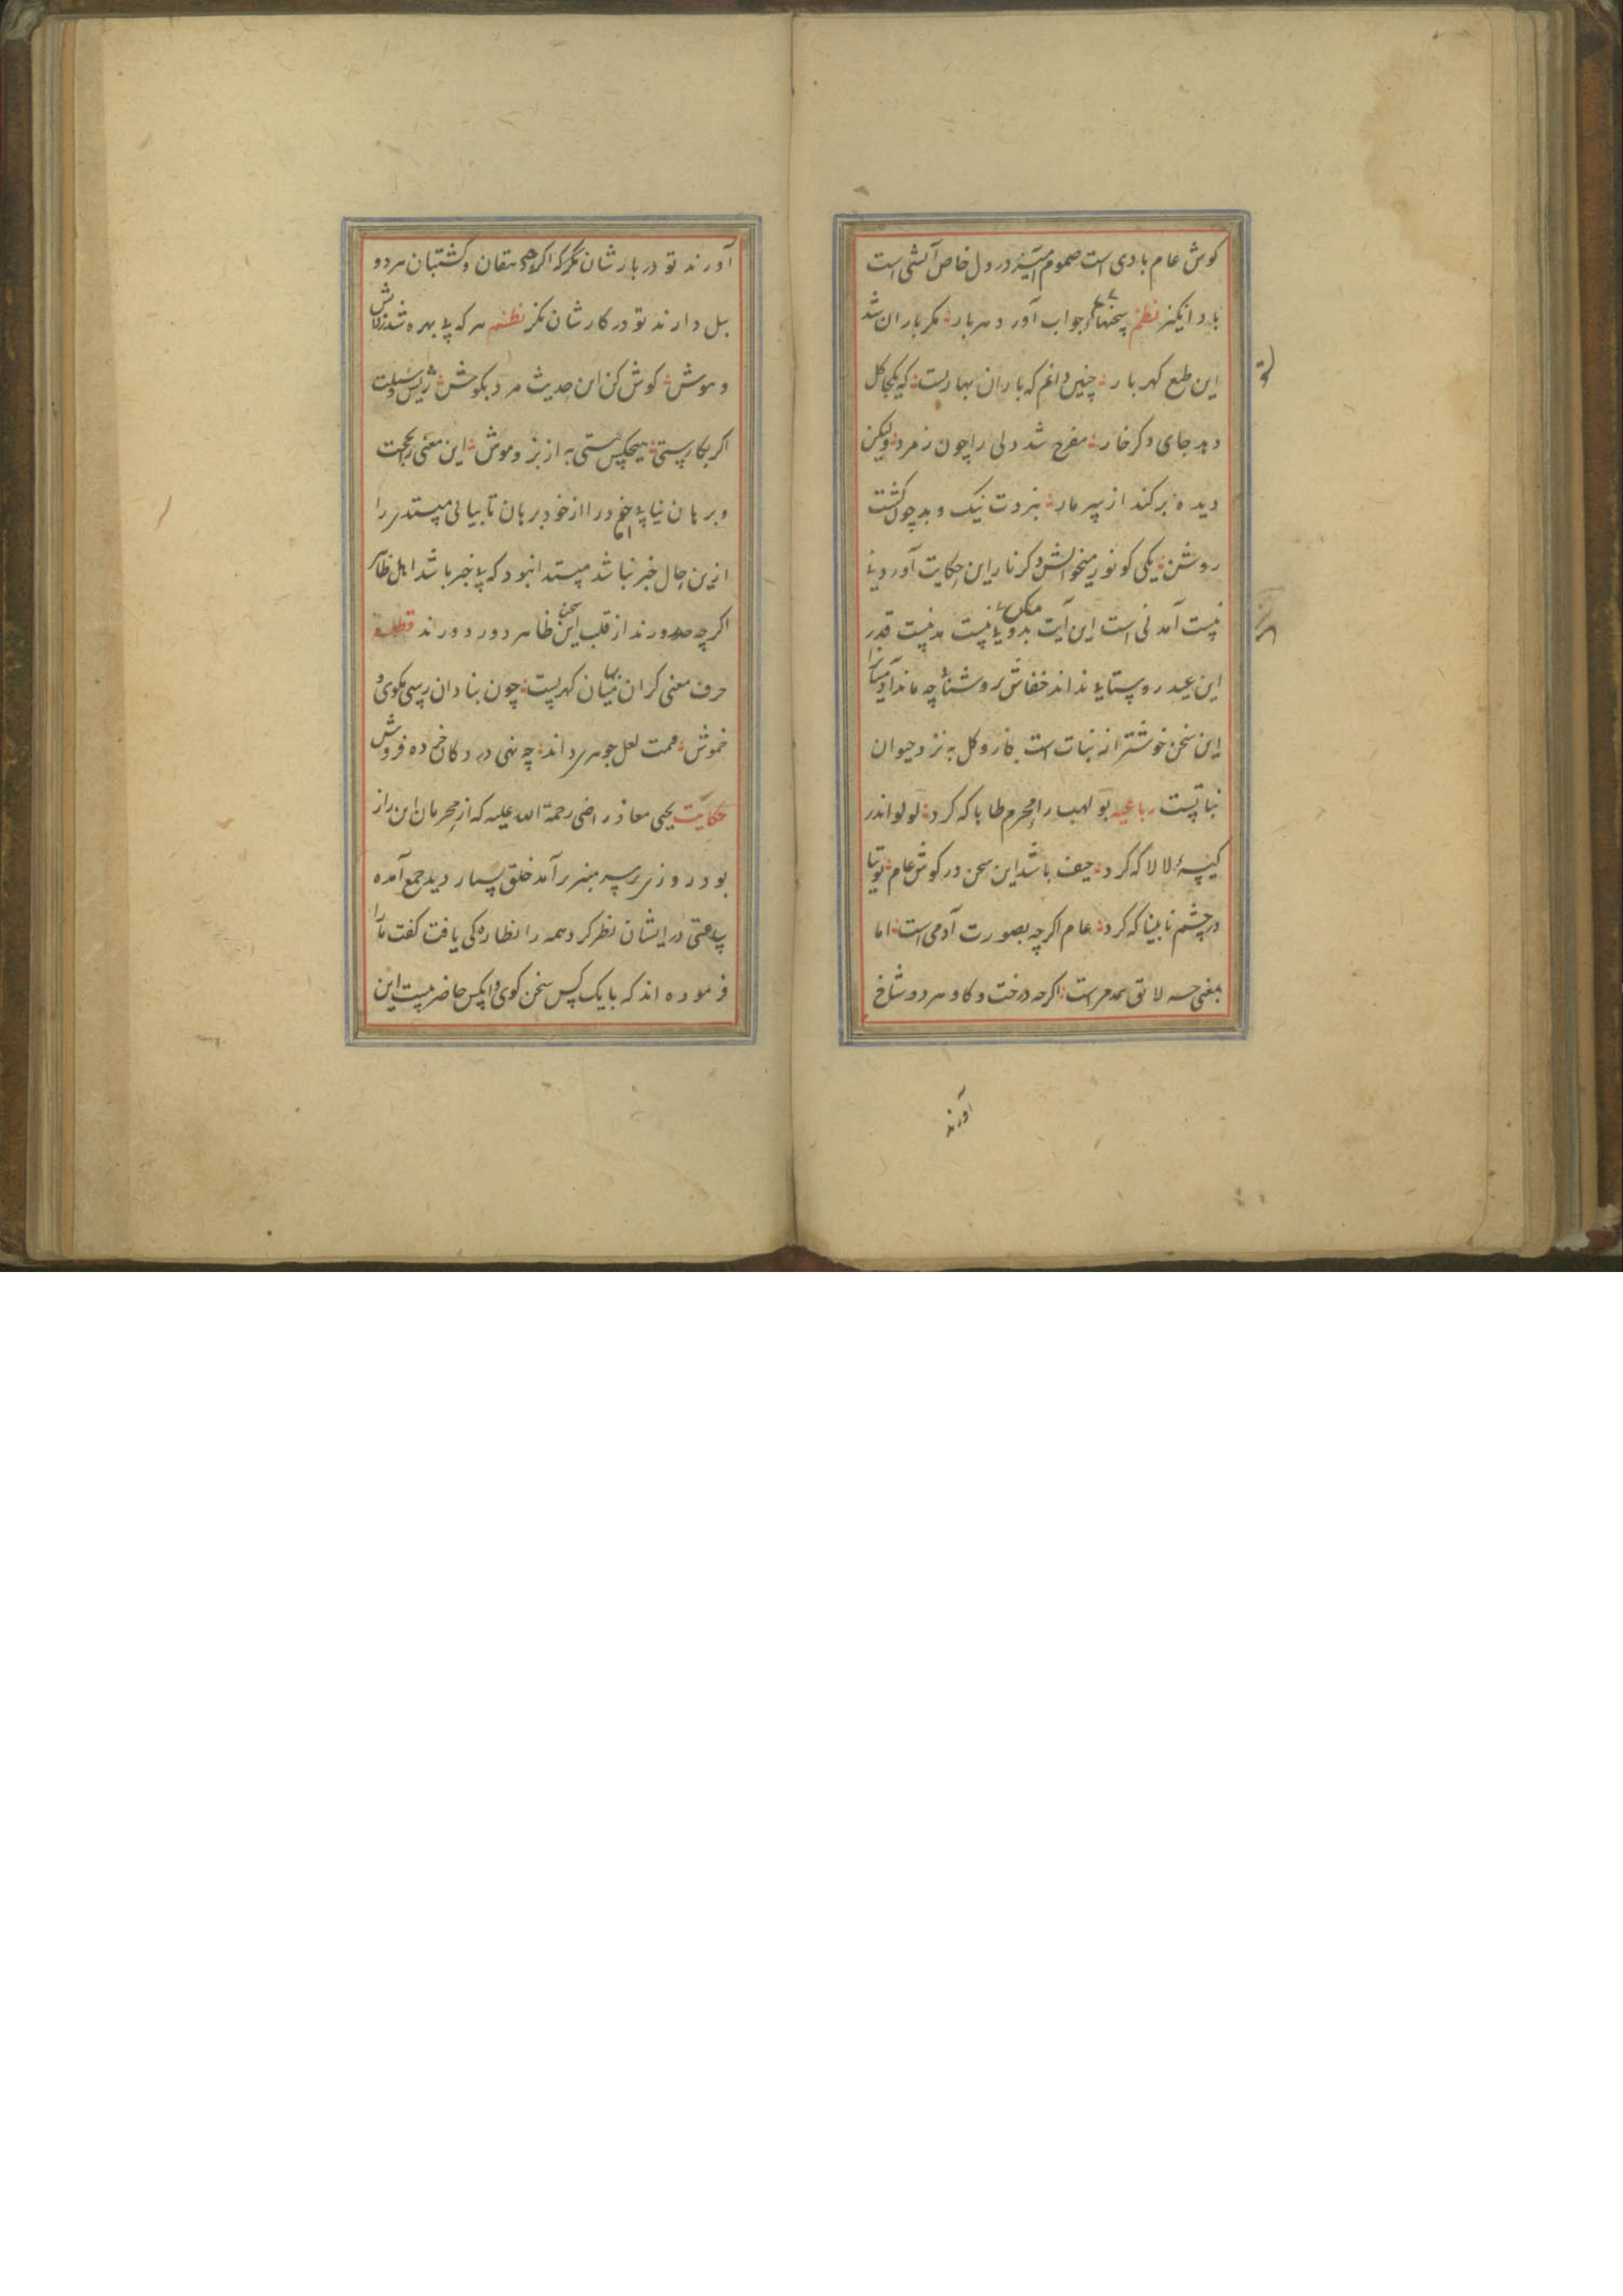 کوش عام بادی است صموم آمیز در دل خاص آتشی است
باد انکیز نظم سخنهاء جواب آورد هر بار مکر باران شد
این طبع کهربار چنین دانم که باران بهارست که یکجا کل
دهد جای دکر خار مفرح شد دلی را چون زمرد ولیکن
دیده برکند از سر مار بنزدت نیک و بد چون کشت
روشن یکی کو نور میخوانش دکر نار این حکایت آورد
نیست آمدنی است این آیت نیست مدنیست قدر
این عید روستایی نداند خفاش بروشنائی چه ماند آدمیان را
این سخن خوشتر از نبات است خار و کل به نزد حیوان
نباتیست رباعیه بولهب را محرم طاها که کرد لولو اندر
کیسهٔ لالا که کرد حیف باشد این سخن در کوش عام توتیا
در چشم نابینا که کرد عام اکرچه بصورت آدمی است اما
بمعنی لایق است اکرچه درخت و کاو هر دو شاخ
آورند
آورند تو در بارشان نکر که اکرچه دهقان و کشتبان هر دو
بیل دارند تو در کارشان نکر نظم هر که بی بهره شد ز دانش
و هوش کوش کن این حدیث مرد بکوش ریش و سبلت
اکر بکار ستی هیچکس نیستی به از بز و موش این معنی را بحجت
و برهان نیابی خود را از خود برهان تا بیابی مبتدی را
ازین حال خبر نباشد مبتدا نبود که بی خبر باشد اهل ظاهر
اکرچه صدورند از قلب این سخن ظاهر دور دورند قطعه
حرف معنی کران بها کهریست چون بنادان رسی مکوی و
خموش قیمت لعل جوهری داند چه نهی در دکان خرده فروش
حکایت یحیی معاذ راضی رحمة الله علیه که از محرمان این راز
بود روزی بر سر منبر برآمد خلق بسیار دید جمع آمده
ساعتی در ایشان نظر کرد همه را نظارکی یافت کفت ما را
فرموده اند که با یک کس سخن کوی و آنکس حاضر نیست این